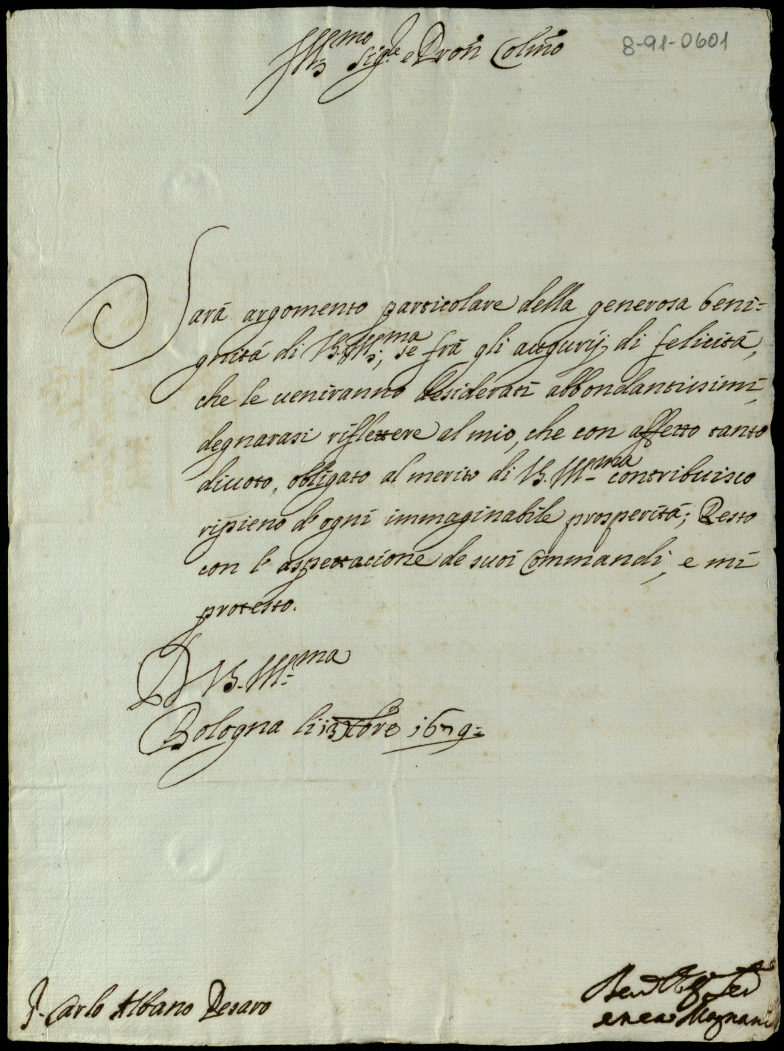 Ill.mo Sig.re e Pron Colmo
8-91-0601
Sarà argomento particolare della generosa beni=
gnità di V.S. Ill.ma, se frà gli augurij di felicità,
che le veniranno desiderati abbondantissimi,
degnarasi riflettere al mio, che con affetto tanto
divoto, obligato al merito di V.S. Ill.ma contribuisco
ripieno d'ogni immaginabile prosperità; Resto
con l'aspettacione de suoi Commandi, e mi
protesto.
D V.S. Ill.ma
Bologna li 13 Xbre 1679=
S. Carlo Albano Pesaro
enea Magnani